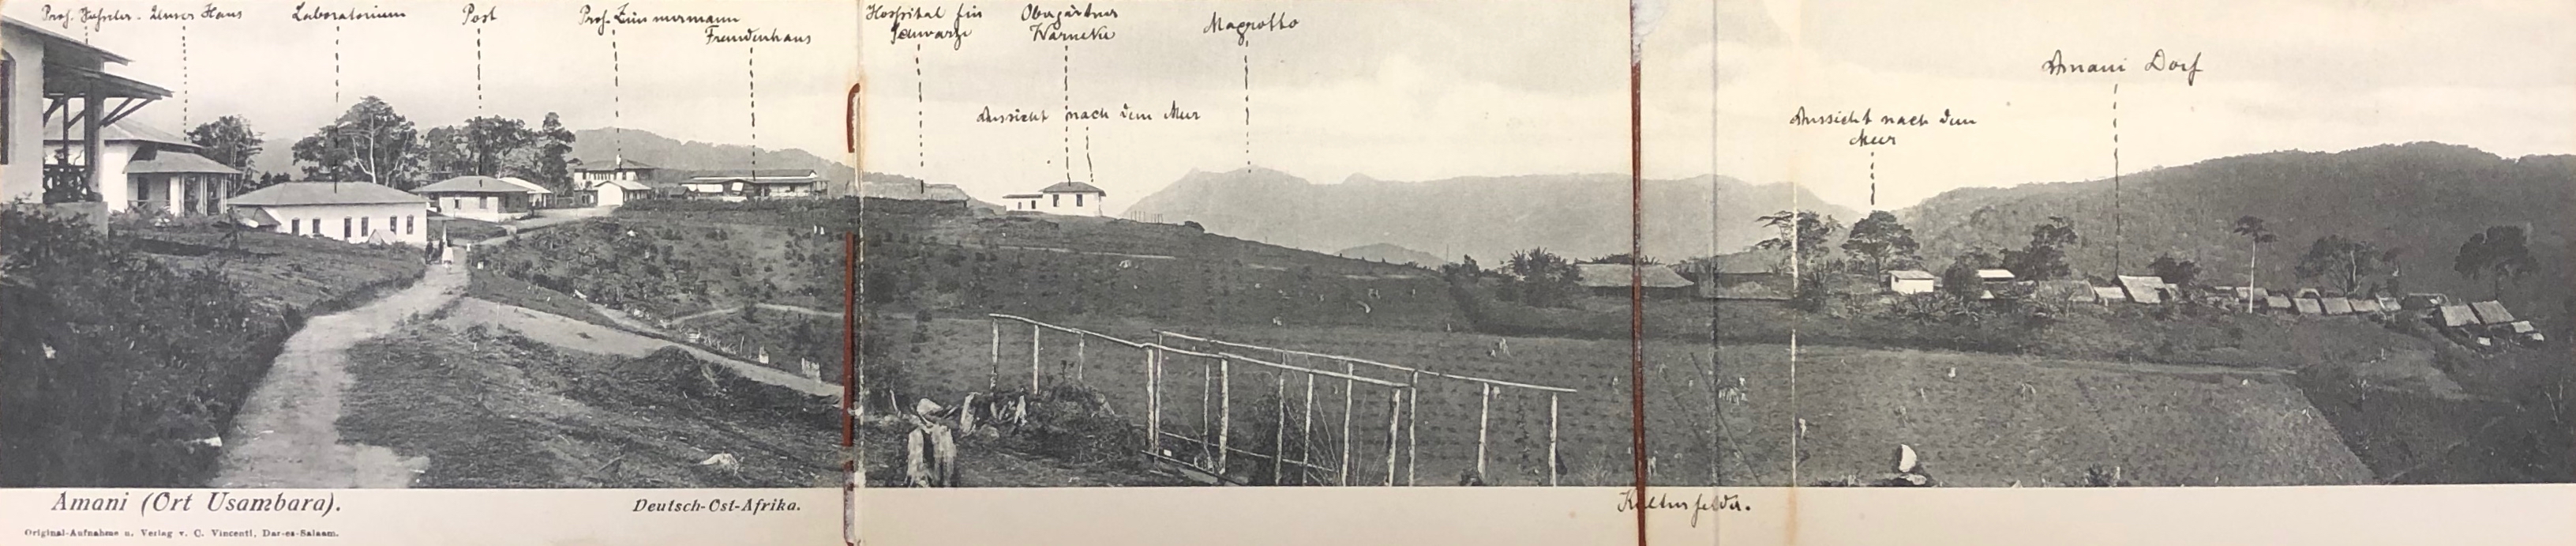 Prof. Vosseler - Unser Haus
Laboratorium
Post
Prof. Zimmermann
Fremdenhaus
Hospital für
Schwarze
Obergärtner
Warnecke
Magrotto
Aussicht nach dem Meer
Aussicht nach dem
Meer
Amani Dorf
Amani (Ort Usambara).
Deutsch-Ost-Afrika.
Kulturfelder.
Original-Aufnahme u. Verlag v. C. Vincenti, Dar-es-Salaam.